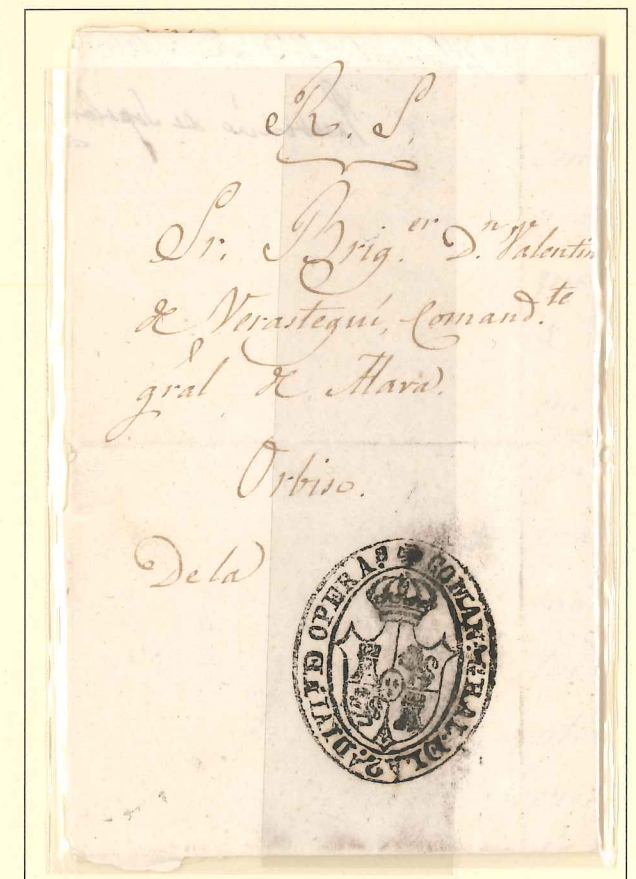 R. S.
Sr. Brig.er D.n Valentin
de Verastegui, Comand.te
gral de Alava.
Orbiso.
De la
COMAN. GRAL. DLA 2A DIVI. D OPERAS.